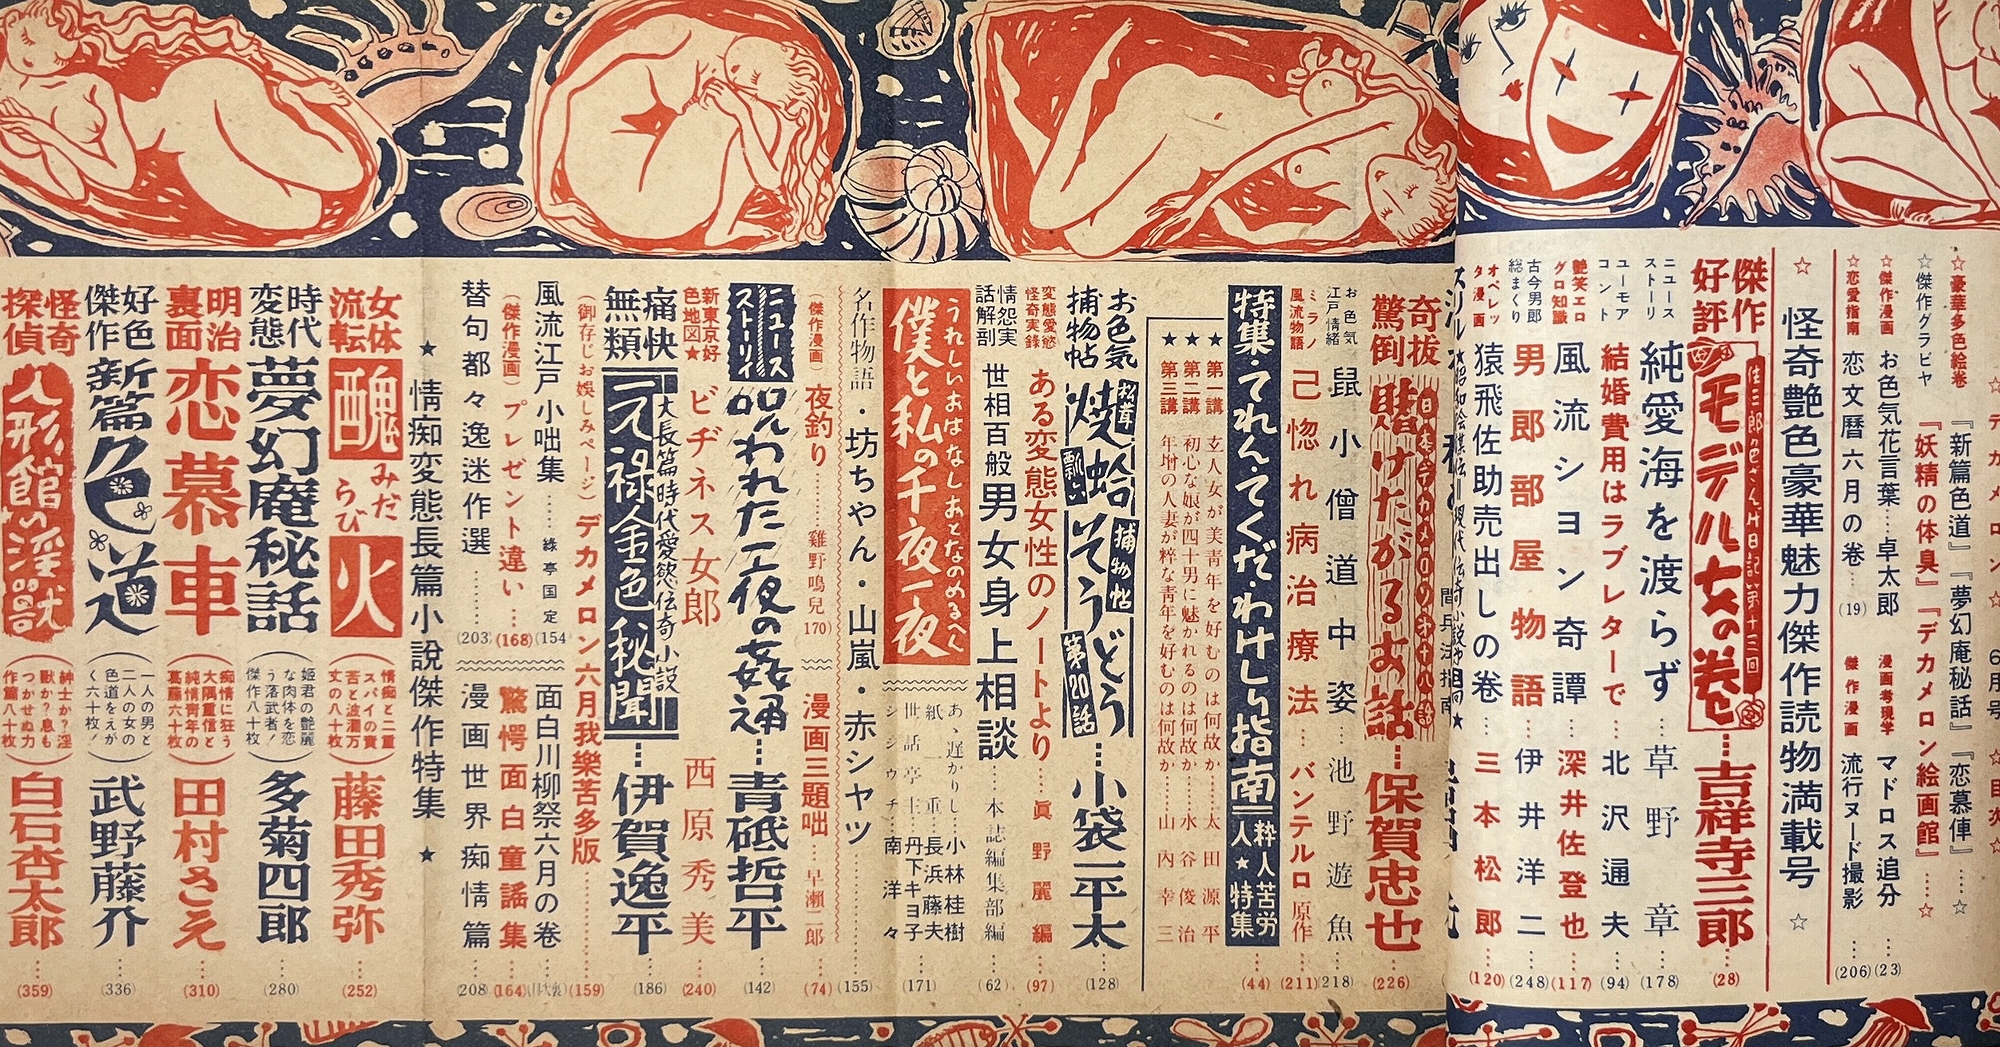 ☆デカメロン☆
6月号
☆目次☆
☆豪華多色絵巻
『新篇色道』『夢幻庵秘話』『恋慕俥』……☆
☆傑作グラビヤ
『妖精の体臭』『デカメロン絵画館』……☆
☆傑作漫画
お色気花言葉……卓太郎
漫画考現学
マドロス追分……(23)
☆恋愛指南
恋文暦六月の巻……(19)
傑作漫画
流行ヌード撮影……(206)
☆怪奇艶色豪華魅力傑作読物満載号☆
傑作
好評
モデル女の巻……吉祥寺三郎……(28)
ニュース
ストーリ
純愛海を渡らず……草野章……(178)
ユーモア
コント
結婚費用はラブレターで……北沢通夫……(94)
艶笑エロ
グロ知識
風流ションベン奇譚……深井佐登也……(117)
古今男郎
総まくり
男郎部屋物語……伊井洋二……(248)
オペレッ
タ漫画
猿飛佐助売出しの巻……三本松郎……(120)
奇抜
驚倒
日本デカメロンの才十八話
賭けたがるお話……保賀忠也……(226)
お色気
江戸情緒
鼠小僧道中姿……池野遊魚……(218)
ミラノ
風流物語
己惚れ病治療法……バンテルロ原作……(211)
特集・てれん・てくだ・わけしり指南
粋人苦労人★特集……(44)
★第一講 玄人女が美青年を好むのは何故か……太田源平
★第二講 初心な娘が四十男に魅かれるのは何故か……水谷俊治
★第三講 年増の人妻が粋な青年を好むのは何故か……山内幸三
お色気
捕物帖
松茸
焼蛤そうどう
瓢六
捕物帖
第20話
……小袋一平太……(128)
変態愛慾
怪奇実録
ある変態女性のノートより……眞野麗編……(97)
情怨実
話解剖
世相百般男女身上相談……本誌編集部編……(62)
うれしいおはなしおとなのめるへん
僕と私の千夜一夜……(171)
あゝ遅かりし……小林桂樹
紙一重……長浜藤夫
世話亭主……丹下キヨ子
シシウチ……南洋々
名作物語・坊ちゃん・山嵐・赤シャツ……(155)
(傑作漫画)
夜釣り……雞野鳴兒 170)
漫画三題咄……早瀬二郎……(74)
ニュース
ストーリイ
呪われた一夜の姦通……青砥哲平……(142)
新東京好
色地図★
ビヂネス女郎 西原秀美……(240)
痛快
無類
大長篇時代愛慾伝奇小説
元禄金色秘聞……伊賀逸平……(186)
(御存じお娯しみページ)デカメロン六月我樂苦多版……(159)
風流江戸小咄集……綠亭国定(154
面白川柳祭六月の巻
(傑作漫画)プレゼント違い…(168)
驚愕面白童謡集……(164)
替句都々逸迷作選……(203)
漫画世界痴情篇……(208)
★情痴変態長篇小説傑作特集★
女体
流転
醜火
みだらび
(情痴と二重
スパイの責
苦と波瀾万
丈の八十枚)
藤田秀弥……(252)
時代
変態
夢幻庵秘話
(姫君の艶麗
な肉体を恋
う落武者!
傑作八十枚)
多菊四郎……(280)
明治
裏面
恋慕車
(痴情に狂う
大隅重信と
純情青年の
葛藤六十枚)
田村さえ……(310)
好色
傑作
新篇色道
(一人の男と
二人の女の
色道をえが
く六十枚!)
武野藤介……(336)
怪奇
探偵
人形館の淫獣
(紳士か?淫
獣か?息も
つかせぬ力
作篇八十枚)
白石杏太郎……(359)